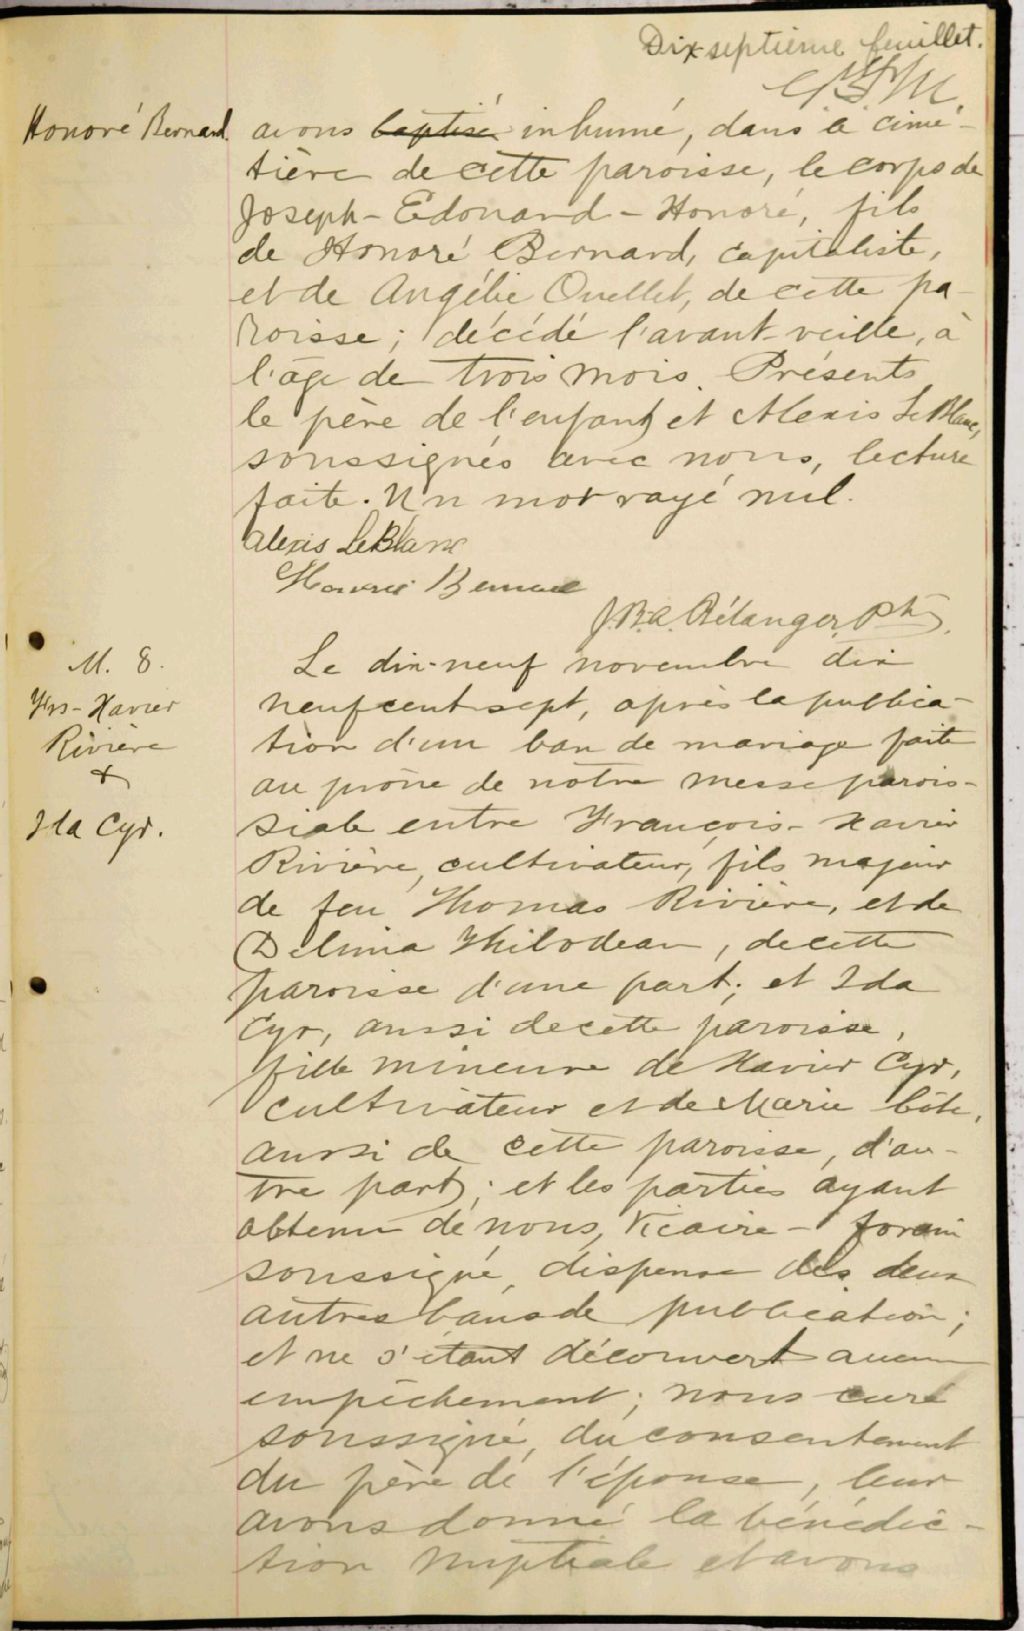 Dix septième feuillet.
Honoré Bernard.
avons baptisé inhumé, dans le cime-
tière de cette paroisse, le corps de
Joseph-Edouard-Honoré, fils
de Honoré Bernard, capitaliste,
et de Angélie Ouellet, de cette pa-
roisse; décédé l'avant-veille, à
l'âge de trois mois. Présents
le père de l'enfant et Alexis LeBlanc,
soussignés avec nous, lecture
faite. Un mot rayé nul.
Alexis LeBlanc
Honoré Bernard
J.B.A. Bélanger, Ptre.
M. 8.
Frs-Xavier
Rivière
&
Ida Cyr.
Le dix-neuf novembre dix
neuf cent sept, après la publica-
tion d'un ban de mariage faite
au prône de notre messe parois-
siale entre François-Xavier
Rivière, cultivateur, fils majeur
de feu Thomas Rivière, et de
Delima Thibodeau, de cette
paroisse d'une part; et Ida
Cyr, aussi de cette paroisse,
fille mineure de Xavier Cyr,
cultivateur et de Marie Côté,
aussi de cette paroisse, d'au-
tre part; et les parties ayant
obtenu de nous, Vicaire-forain
soussigné, dispense des deux
autres bans de publication;
et ne s'étant découvert aucun
empêchement; nous curé
soussigné, du consentement
du père de l'épouse, leur
avons donné la bénédic-
tion nuptiale et avons